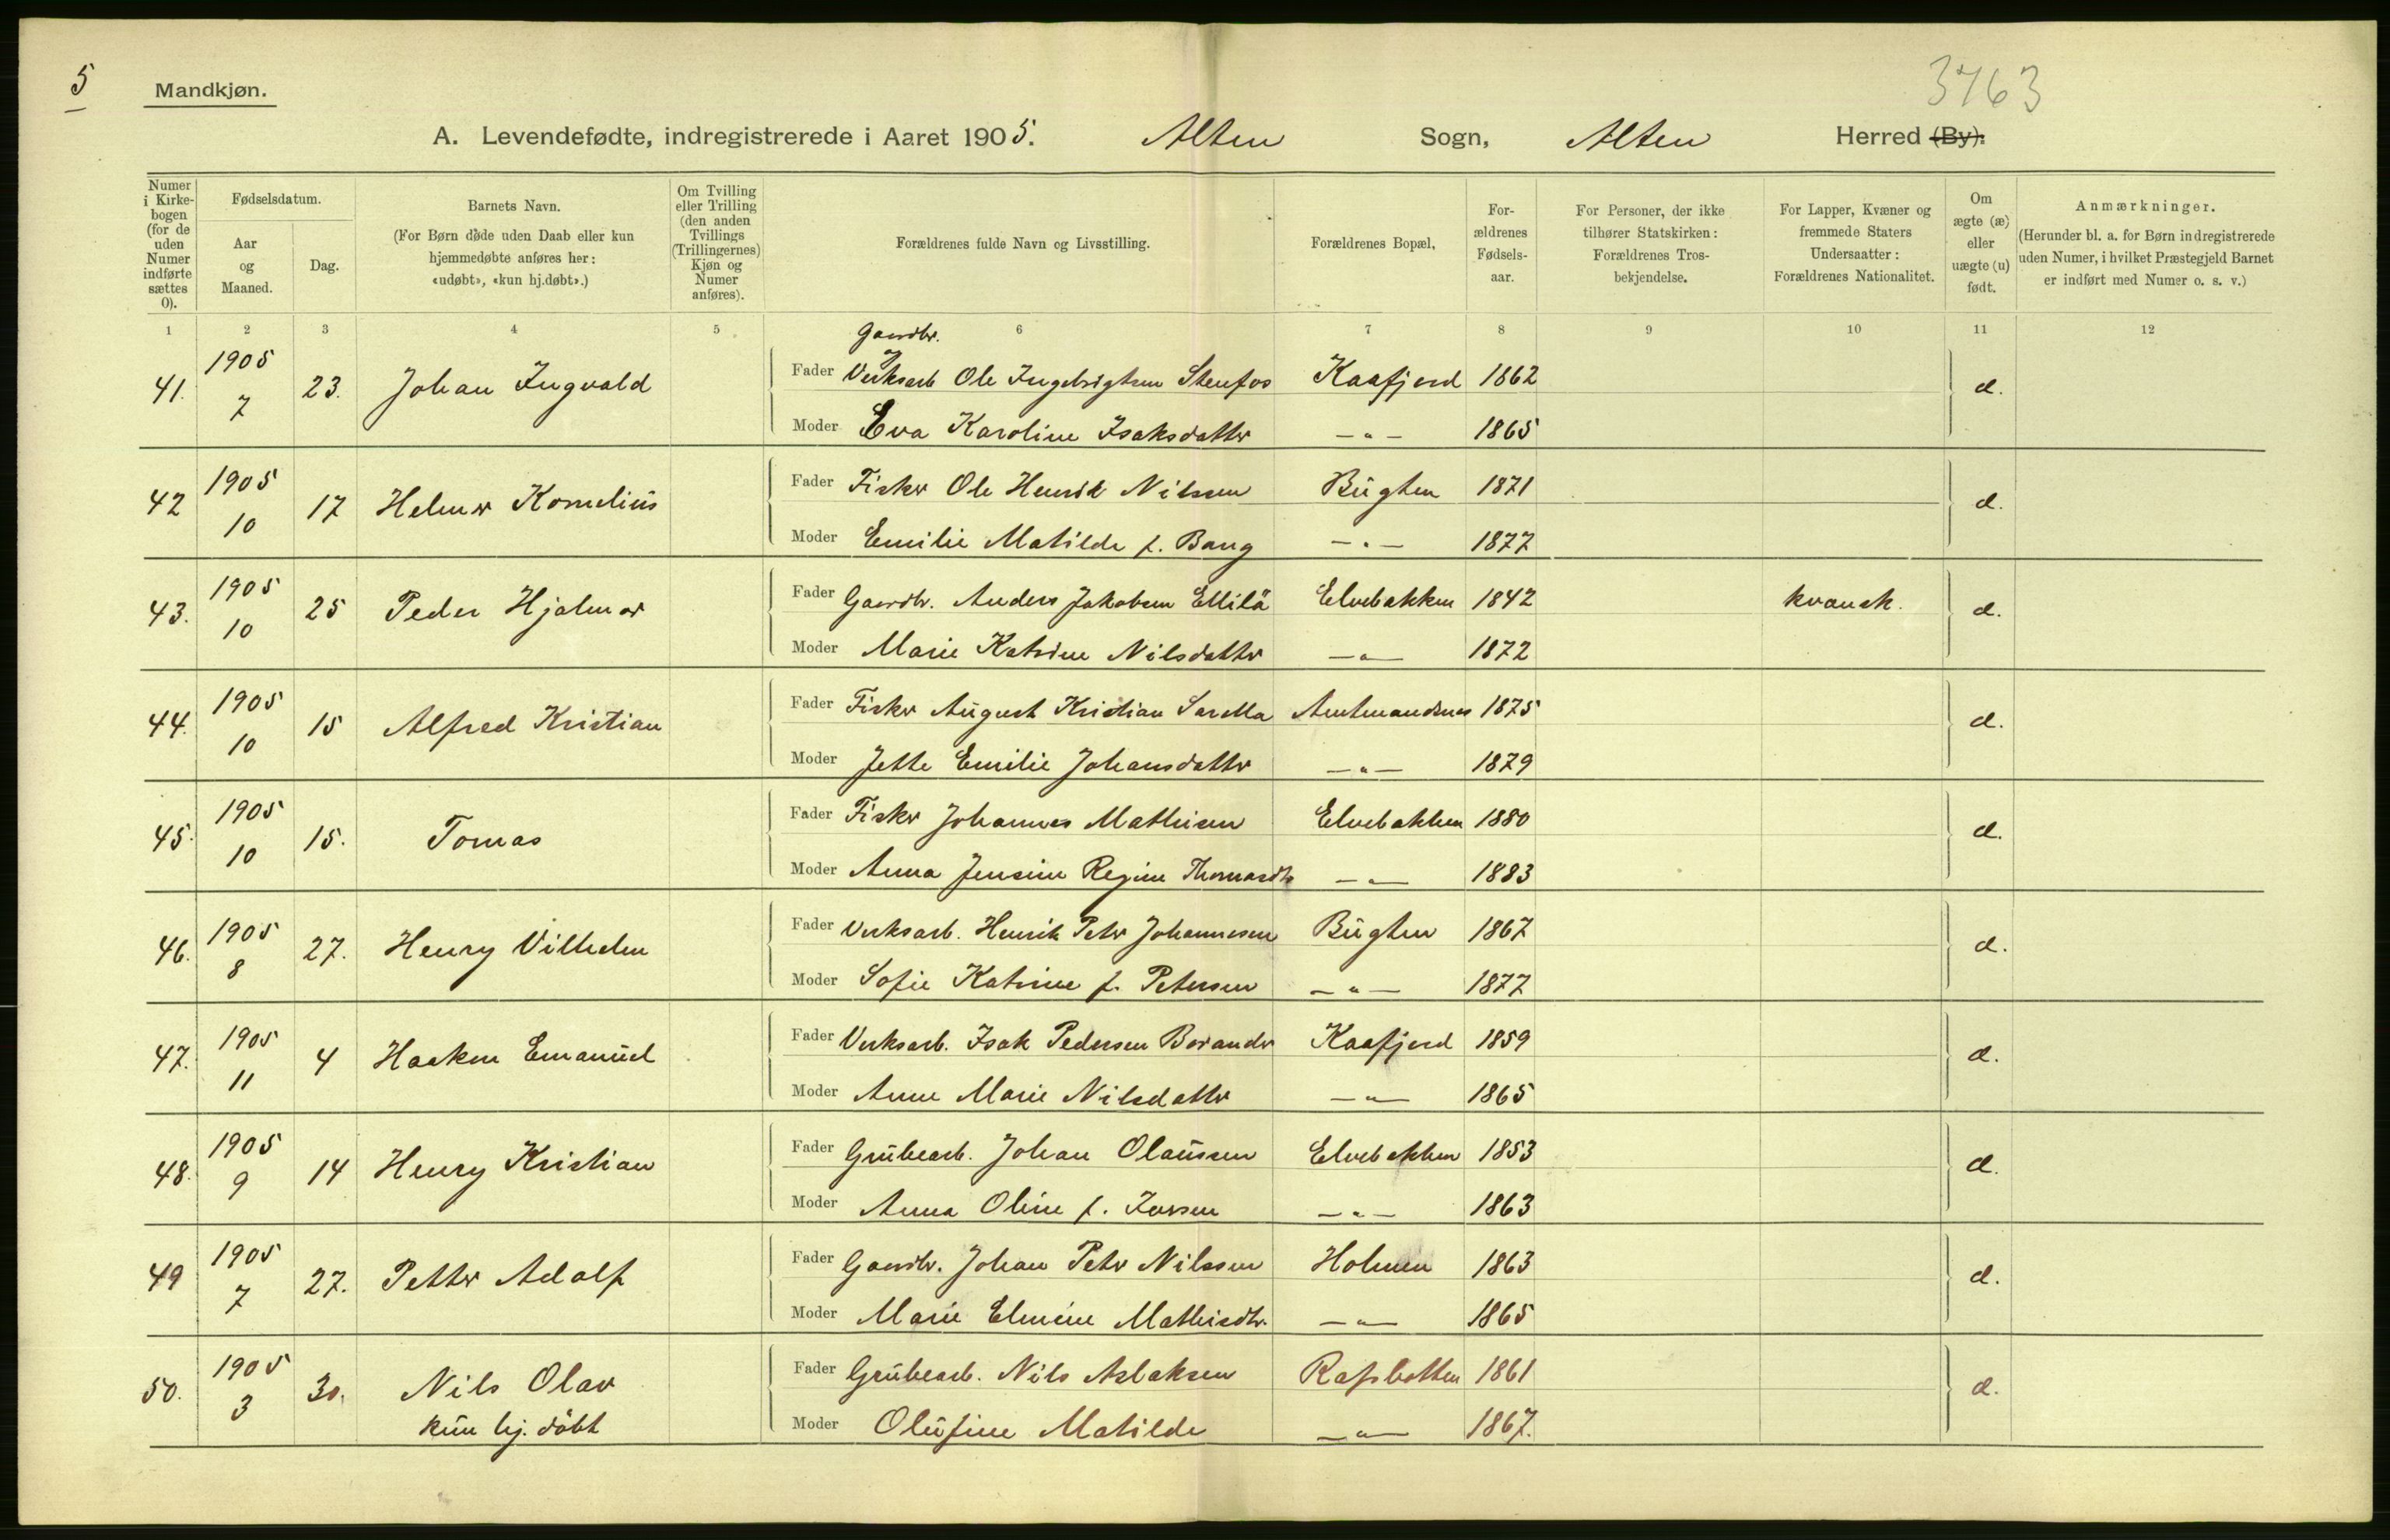 5
Mandkjøn.
3763
A. Levendefødte, indregistrerede i Aaret 1905. Alten Sogn, Alten Herred (By).
Numer i Kirkebogen (for de uden Numer indførte sættes 0).
Fødselsdatum.
Aar og Maaned.
Dag.
Barnets Navn.
(For Børn døde uden Daab eller kun hjemmedøbte anføres her: «udøbt», «kun hj.døbt».)
Om Tvilling eller Trilling (den anden Tvillings (Trillingernes) Kjøn og Numer anføres).
Forældrenes fulde Navn og Livsstilling.
Forældrenes Bopæl,
Forældrenes Fødselsaar.
For Personer, der ikke tilhører Statskirken: Forældrenes Trosbekjendelse.
For Lapper, Kvæner og fremmede Staters Undersaatter: Forældrenes Nationalitet.
Om ægte (æ) eller uægte (u) født.
Anmærkninger.
(Herunder bl. a. for Børn indregistrerede uden Numer, i hvilket Præstegjeld Barnet er indført med Numer o. s. v.)
1 2 3 4 5 6 7 8 9 10 11 12
Gaardbr.
41. 1905 7 23. Johan Ingvald Fader Verksarb Ole Ingebrigtsen Stenfos Kaafjord 1862 æ.
Moder Eva Karoline Isaksdatter —"— 1865
42 1905 10 17 Helmer Kornelius Fader Fisker Ole Henrik Nilssen Bugten 1871 æ.
Moder Emilie Matilde f. Bang —"— 1877
43. 1905 10 25 Peder Hjalmar Fader Gaardbr. Anders Jakobsen Ellilä Elvebakken 1842 kvænsk. æ.
Moder Marie Katrine Nilsdatter —"— 1872
44. 1905 10 15 Alfred Kristian Fader Fisker August Kristian Sarella Amtmandsnes 1875 æ.
Moder Jette Emilie Johansdatter —"— 1879
45. 1905 10 15. Tomas Fader Fisker Johannes Mathisen Elvebakken 1880 æ.
Moder Anna Jensine Regine Thomasdtr —"— 1883
46. 1905 8 27. Henry Vilhelm Fader Verksarb. Henrik Peter Johannesen Bugten 1867 æ.
Moder Sofie Katrine f. Petersen —"— 1877
47. 1905 11 4 Haakon Emanuel Fader Verksarb. Isak Pedersen Borander Kaafjord 1859 æ.
Moder Anne Marie Nilsdatter —"— 1865
48. 1905 9 14 Henry Kristian Fader Grubearb. Johan Olaussen Elvebakken 1853 æ.
Moder Anna Oline f. Iversen —"— 1863
49 1905 7 27. Petter Adolf Fader Gaardbr. Johan Peter Nilssen Holmen 1863 æ.
Moder Marie Elmine Mathisdtr. —"— 1865
50. 1905 3 30. Nils Olav Fader Grubearb. Nils Aslaksen Rafsbotten 1861 æ.
kun hj. döbt Moder Olufine Matilde —"— 1867.